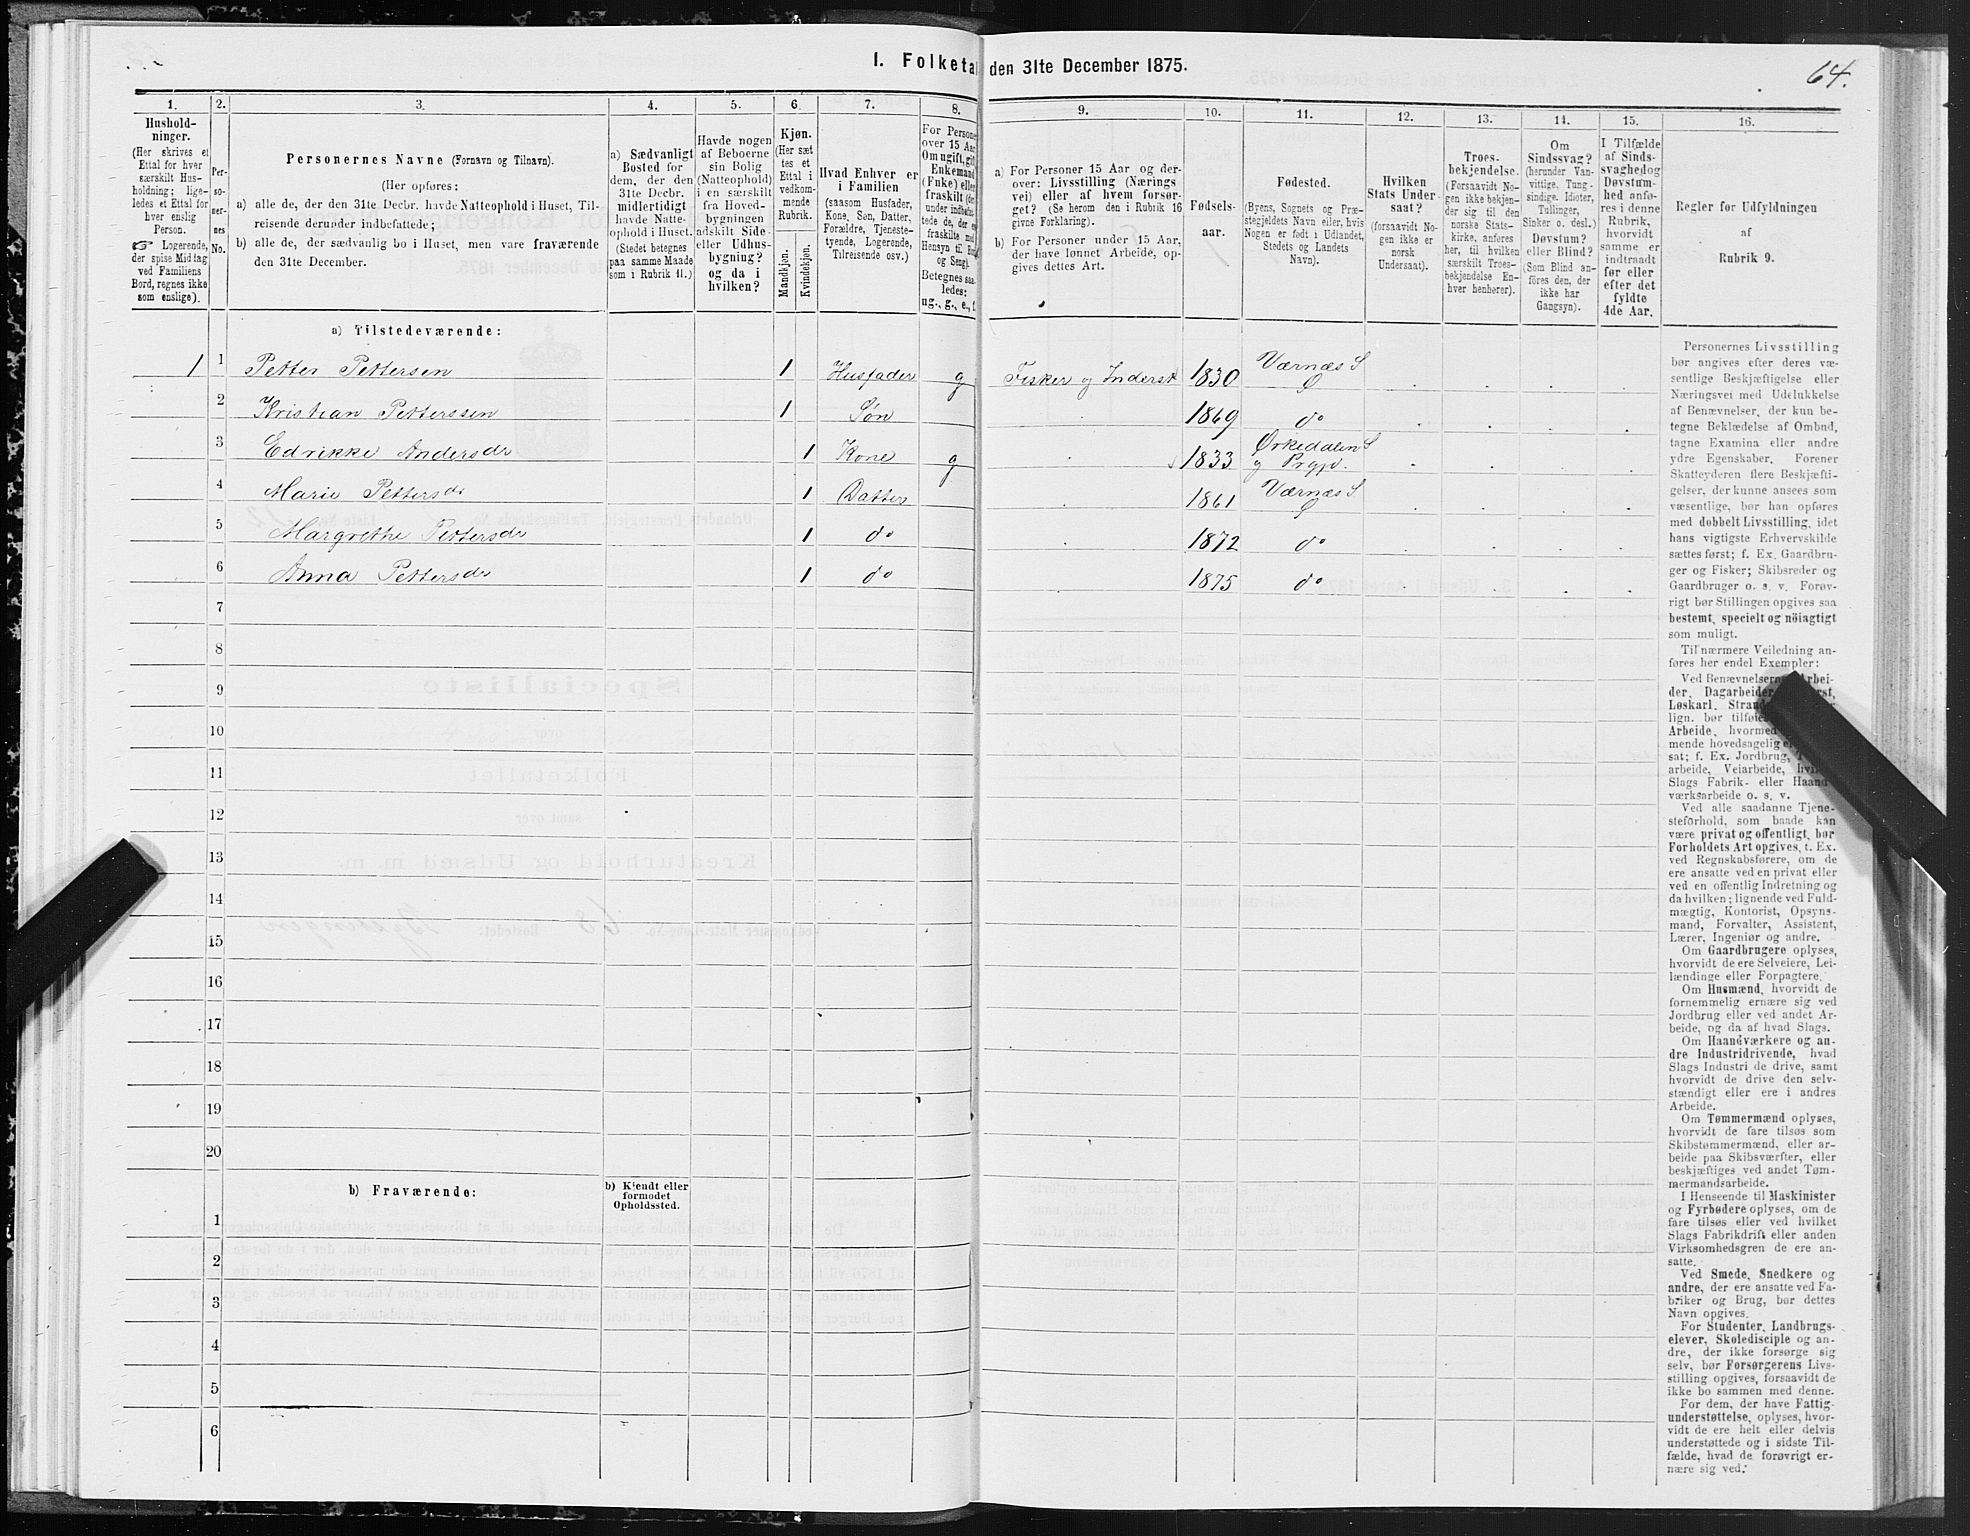 I. Folketal den 31te December 1875.
64.
1.
2.
3.
4.
5.
6.
7.
8.
9.
10.
11.
12.
13.
14.
15.
16.
Hushold-
ninger.
(Her skrives et
Ettal for hver
særskilt Hus-
holdning; lige-
ledes et Ettal for
hver enslig
Person.
☞ Logerende,
der spise Middag
ved Familiens
Bord, regnes ikke
som enslige).
Per-
so-
ner-
nes
No.
Personernes Navne (Fornavn og Tilnavn).
(Her opføres:
a) alle de, der den 31te Decbr. havde Natteophold i Huset, Til-
reisende derunder indbefattede;
b) alle de, der sædvanlig bo i Huset, men vare fraværende
den 31te December.
a) Sædvanligt
Bosted for
dem, der den
31te Decbr.
midlertidigt
havde Natte-
ophold i Huset.
(Stedet betegnes
paa samme Maade
som i Rubrik 11.)
Havde nogen
af Beboerne
sin Bolig
(Natteophold)
i en særskilt
fra Hoved-
bygningen
adskilt Side-
eller Udhus-
bygning?
og da i
hvilken?
Kjøn.
(Her sæt
tes et
Ettal i
vedkom-
mende
Rubrik.
Mandkjøn.
Kvindekjøn.
Hvad Enhver er
i Familien
(saasom Husfader,
Kone, Søn, Datter,
Forældre, Tjeneste-
tyende, Logerende,
Tilreisende osv.)
For Personer
over 15 Aar
Om ugift, gift,
Enkemand
(Enke) eller
fraskilt
Betegnes saa-
ledes:
ug., g., e., f.
a) For Personer 15 Aar og der-
over: Livsstilling (Nærings
vei) eller af hvem forsør-
get? (Se herom den i Rubrik 16
givne Forklaring).
b) For Personer under 15 Aar,
der have lønnet Arbeide, op-
gives dettes Art.
Fødsels-
aar.
Fødested.
(Byens, Sognets og Præ-
stegjeldets Navn eller, hvis
Nogen er født i Udlandet,
Stedets og Landets
Navn).
Hvilken
Stats Under
saat?
(forsaavidt No-
gen ikke er
norsk
Undersaat).
Troes-
bekjendelse.
(Forsaavidt No-
gen ikke bekjen-
der sig til den
norske Stats-
kirke, anføres
her, til hvilken
særskilt Troes-
bekjendelse En-
hver henhører).
Om
Sindssvag?
(herunder Van-
vittige, Tung-
sindige, Idioter,
Tullinger,
Sinker o. desl.)
Døvstum?
eller Blind?
(Som Blind an-
føres den, der
ikke har
Gangsyn).
I Tilfælde
af Sinds-
svaghed og
Døvstum-
hed anfø-
res i denne
Rubrik,
hvorvidt
samme er
indtraadt
før eller
efter det
fyldte
4de Aar.
Regler for Udfyldningen
af
Rubrik 9.
a) Tilstedeværende:
1 1 Petter Pettersen 1 Husfader g Fisker og Inderst 1830 Værnæs S Ø
2 Kristian Petterssen 1 Søn 1869 do
3 Edrikke Andersdr 1 Kone g 1833 Ørkedalen S og Prgjd.
4 Marie Pettersdr 1 Datter 1861 Værnæs S Ø
5 Margrethe Pettersdr 1 do 1872 do
6 Anna Pettersdr 1 do 1875 do
7
8
9
10
11
12
13
14
15
16
17
18
19
20
b) Fraværende:
b) Kjendt eller
formodet
Opholdssted.
1
2
3
4
5
6
Personernes Livsstilling
bør angives efter deres væ-
sentlige Beskjæftigelse eller
Næringsvei med Udelukkelse
af Benævnelser, der kun be-
tegne Beklædelse af Ombud,
tagne Examina eller andre
ydre Egenskaber. Forener
Skatteyderen flere Beskjæfti-
gelser, der kunne ansees som
væsentlige, bør han opføres
med dobbelt Livsstilling, idet
hans vigtigste Erhvervskilde
sættes først; f. Ex. Gaardbru-
ger og Fisker; Skibsreder og
Gaardbruger o. s. v. Forøv-
rigt bør Stillingen opgives saa
bestemt, specielt og nöiagtigt
som muligt.
Til nærmere Veiledning an-
føres her endel Exempler:
Ved Benævnelserne
der, Dagarbeider
Løskarl, Strand
lign. bør tilføies
Arbeide, hvormed
mende hovedsagelig er
sat; f. Ex. Jordbrug,
arbeide, Veiarbeide,
Slags Fabrik- eller Haand-
værksarbeide o. s. v.
Ved alle saadanne Tjene-
steforhold, som baade kan
være privat og offentligt, bør
Forholdets Art opgives, t. Ex.
ved Regnskabsførere, om de
ere ansatte ved en privat eller
ved en offentlig Indretning og
da hvilken; lignende ved Fuld-
mægtig, Kontorist, Opsyns-
mand, Forvalter, Assistent,
Lærer, Ingeniør og andre.
Om Gaardbrugere oplyses,
hvorvidt de ere Selveiere, Lei-
lændinge eller Forpagtere.
Om Husmænd, hvorvidt de
fornemmelig ernære sig ved
Jordbrug eller ved andet Ar-
beide, og da af hvad Slags.
Om Haandværkere og an-
dre Industridrivende, hvad
Slags Industri de drive, samt
hvorvidt de drive den selv-
stændigt eller ere i andres
Arbeide.
Om Tømmermænd oplyses,
hvorvidt de fare tilsøs som
Skibstømmermænd, eller ar-
beide paa Skibsværfter, eller
beskjæftiges ved andet Tøm-
mermandsarbeide.
I Henseende til Maskinister
og Fyrbødere oplyses, om de
fare tilsøs eller ved hvilket
Slags Fabrikdrift eller anden
Virksomhedsgren de ere an-
satte.
Ved Smede, Snedkere og
andre, der ere ansatte ved Fa-
briker og Brug, bør dettes
Navn opgives.
For Studenter, Landbrugs-
elever, Skoledisciple og an-
dre, der ikke forsørge sig
selv, bør Forsørgerens Livs-
stilling opgives, forsaavidt de
ikke bo sammen med denne.
For dem, der have Fattig-
understøttelse, oplyses, hvor-
vidt de ere helt eller delvis
understøttede og i sidste Til-
fælde, hvad de forøvrigt er-
nære sig ved.